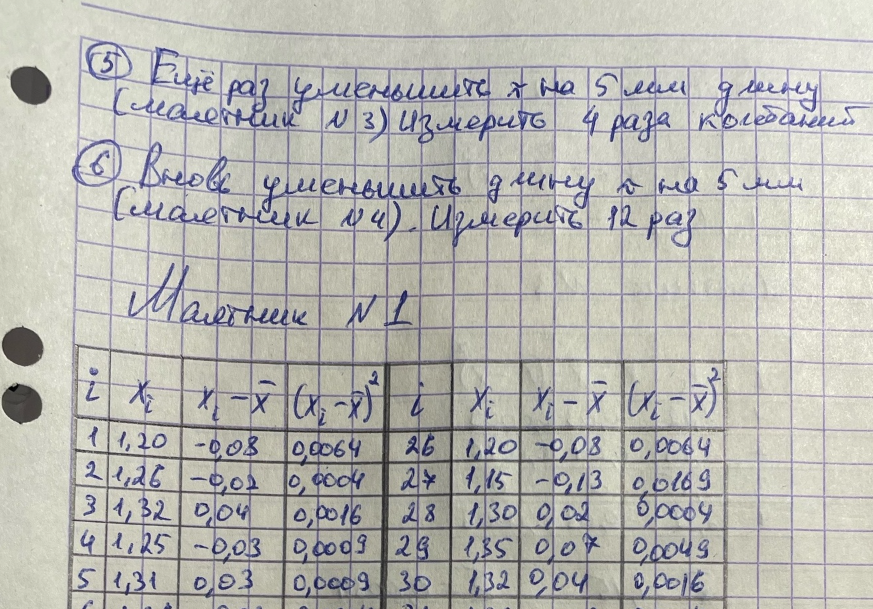 5 Ещё раз уменьшить ≈ на 5 мм длину
(маятник N 3) Измерить 4 раза колебаний
6 Вновь уменьшить длину ≈ на 5 мм
(маятник N 4). Измерить 12 раз
Маятник N 1
i xᵢ xᵢ – x̄ (xᵢ-x̄)² i xᵢ xᵢ – x̄ (xᵢ-x̄)²
1 1,20 -0,08 0,0064 26 1,20 -0,08 0,0064
2 1,26 -0,02 0,0004 27 1,15 -0,13 0,0169
3 1,32 0,04 0,0016 28 1,30 0,02 0,0004
4 1,25 -0,03 0,0009 29 1,35 0,07 0,0049
5 1,31 0,03 0,0009 30 1,32 0,04 0,0016